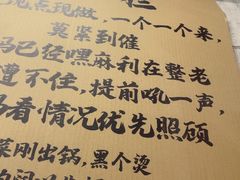 见点现做，一个一个来，
莫紧到催
马已经嘿麻利在整老
遭不住，提前吼一声，
马看情况优先照顾
菜刚出锅，黑个烫